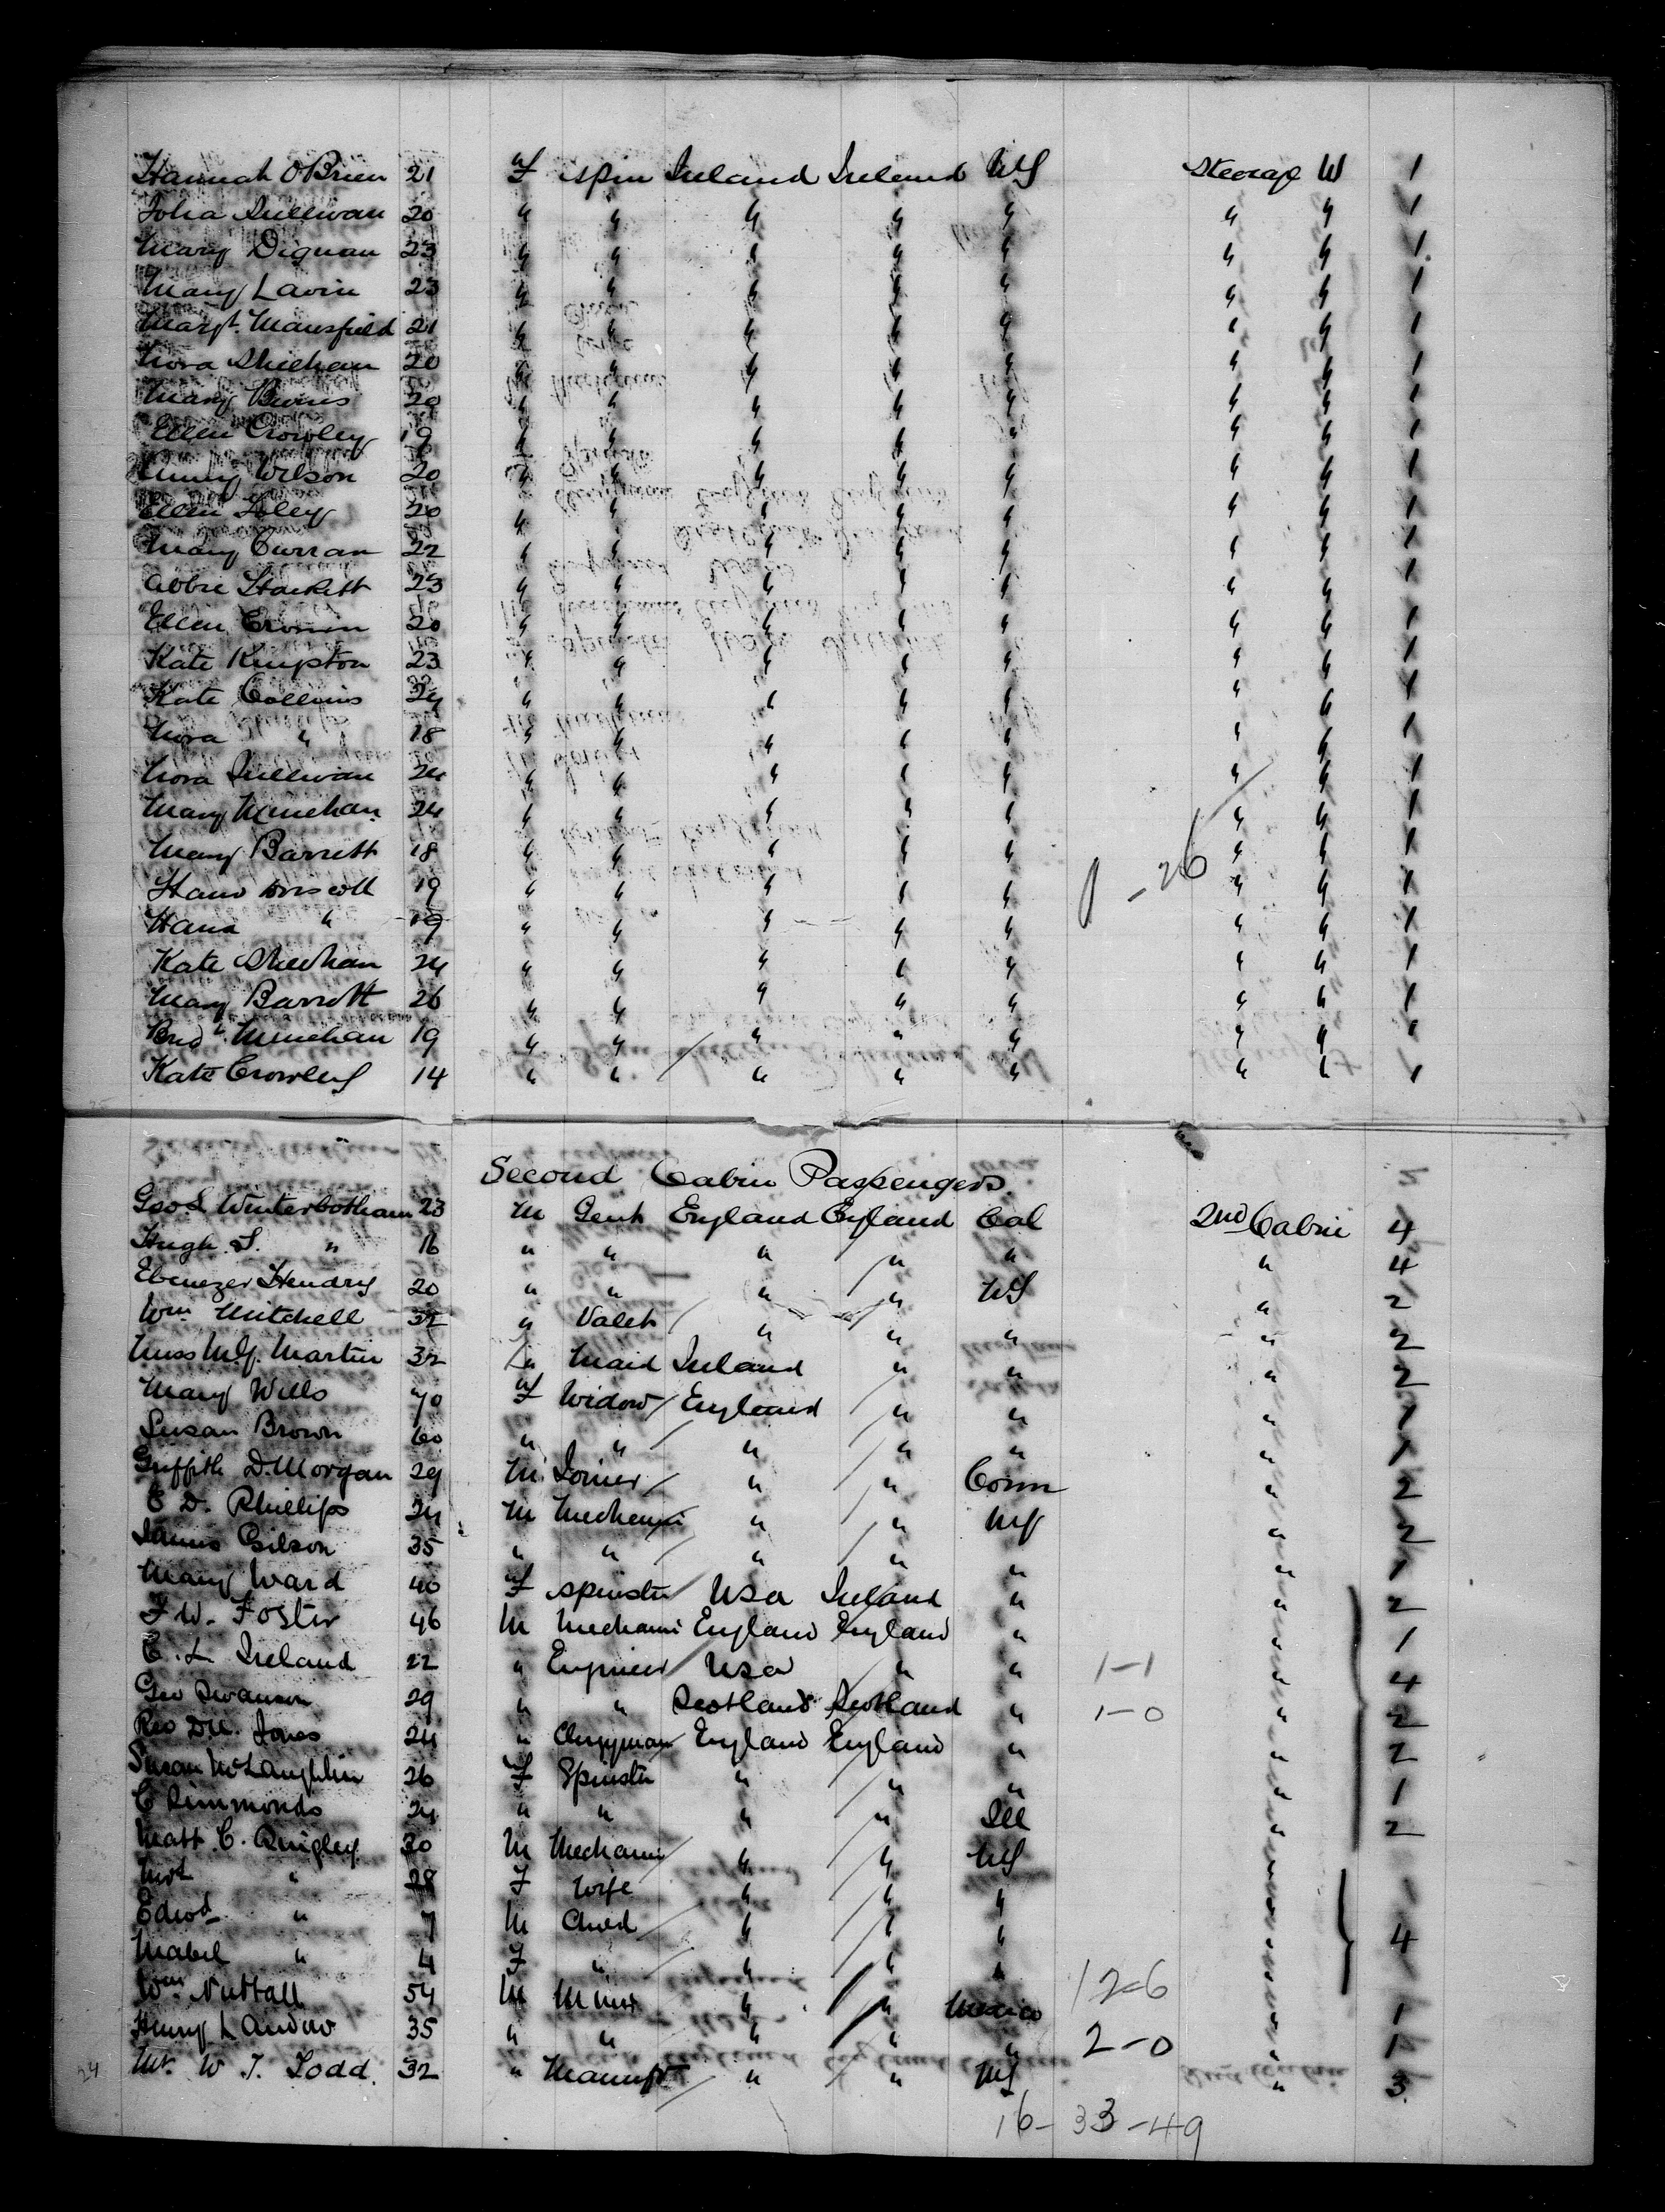 Hannah O'Brien 21 f spin Ireland Ireland US Steerage W 1
Julia Sullivan 20 " " " " " " " 1
Mary Dignan 23 " " " " " " " 1
Mary Lavin 23 " " " " " " " 1
Margt. Mansfield 21 " " " " " " " 1
Nora Sheehan 20 " " " " " " " 1
Mary Burns 20 " " " " " " " 1
Ellen Crowley 19 " " " " " " " 1
Wilson 20 " " " " " " " 1
Ellen Foley 20 " " " " " " " 1
Mary Curran 22 " " " " " " " 1
Abbie Stackett 23 " " " " " " " 1
Ellen Cronin 20 " " " " " " " 1
Kate Kingston 23 " " " " " " " 1
Kate Collins 24 " " " " " " " 1
Nora " 18 " " " " " " " 1
Nora Sullivan 24 " " " " " " " 1
Mary Minehan 24 " " " " " " " 1
Mary Barrett 18 " " " " " " " 1
Driscoll 19 " " " " " " " 1
Hana " 19 " " " " " " " 1
Kate Sheehan 24 " " " " " " " 1
Mary Barrett 26 " " " " " " " 1
Brid Minehan 19 " " " " " " " "
Kate Crowley 14 " " " " " " " 1
Second Cabin Passengers.
Geo S Winterbotham 23 M Gent England England Cal 2nd Cabin 4
Hugh S. " 16 " " " " " " 4
Ebenezer Hendry 20 " " " " US " 2
Wm Mitchell 32 " Valet " " " " 2
Miss M.J. Martin 32 " Maid Ireland " " " 2
Mary Wills 70 f Widow England " " " 1
Susan Brown 60 " " " " " " 1
Griffith D. Morgan 29 M Joiner " " Conn " 2
E D. Phillips 24 M Mechanic " " US " 2
James Gilson 35 " " " " " " 1
Mary Ward 40 f spinster USA Ireland " " 2
F W. Foster 46 M Mechanic England England " " 1
E. L. Ireland 22 " Engineer USA " " 1-1 " 4
Geo Swanson 29 " " Scotland Scotland " 1-0 " 2
Rev D.M. Jones 24 " Clergyman England England " " 2
Susan McLaughlin 26 f Spinster " " " " 1
C Simmonds 24 " " " " Ill " 2
Matt. C. Quigley 30 M Mechanic " " US "
Mrs " 28 F Wife " " " "
Edwd " 7 M Child " " " " 4
Mabel " 4 F " " " " "
Wm Nuttall 54 M Miner " " Mexico 12-6 " 1
Henry Landow 35 " " " " " 2-0 " 1
24 Mr. W T. Todd. 32 " Manufr " " US " 3
16-33-49